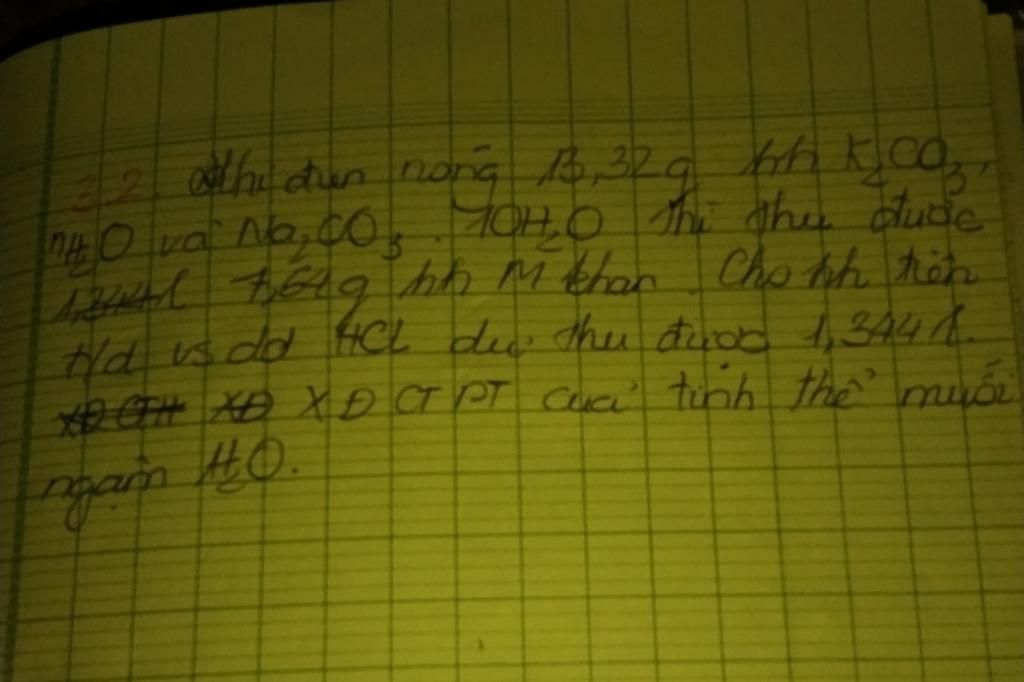 32. Khi đun nóng 13,32g hh K2CO3.
nH2O và Na2CO3. 10H2O thì thu được
7,64g hh M khan. Cho hh trên
t/d vs dd HCl dư thu được 1,344 l.
XĐ CTPT của tinh thể muối
ngậm H2O.